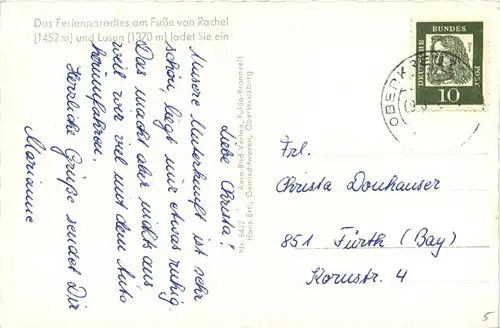 Das Ferienparadies am Fuße von Rachel
(1452 m) und Lusen (1370 m) ladet Sie ein
Liebe Christa!
Unsere Unterkunft ist sehr
schön, liegt nur etwas ruhig.
Das macht aber nichts aus
weil wir viel mit dem Auto
herumfahren.
Herzliche Grüße sendet Dir
Marianne
Nr. 8472 Aero-Bild-Verlag, Fulda-Bronnzell
Hans Ertl, Gemischtwaren, Oberkreuzberg
DEUTSCHE BUNDES POST
10
OBERKREUZ
Frl.
Christa Donhauser
851 Fürth (Bay)
Kornstr. 4
5